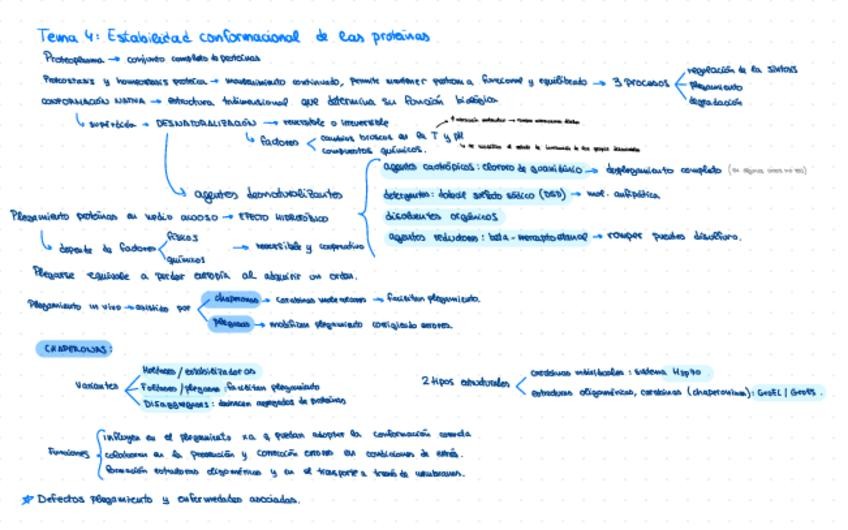 Tema 4: Estabilidad conformacional de las proteinas
Proteoplasma → conjunto completo de proteinas
Proteostasis y homeostasis proteica → mantenimiento continuado, permite mantener proteoma funcional y equilibrado → 3 procesos
regulación de la síntesis
plegamiento
degradación
CONFORMACIÓN NATIVA → estructura tridimensional que determina su función biológica
su pérdida → DESNATURALIZACIÓN → reversible o irreversible
factores
cambios bruscos en la T y pH
compuestos químicos.
agentes desnaturalizantes
agentes caotrópicos: cloruro de guanidinio → desplegamiento completo
detergentes: dodecil sulfato sódico (DSD) → mol. anfipática
disolventes orgánicos
agentes reductores: beta-mercaptoetanol → romper puentes disulfuro.
Plegamiento proteínas en medio acuoso → EFECTO HIDROFÓBICO
depende de factores
físicos
químicos
→ reversible y cooperativo
Plegarse equivale a perder entropía al adquirir un orden.
Plegamiento in vivo → asistido por
chaperonas → facilitan plegamiento.
plegasas → modifican plegamiento corrigiendo errores.
CHAPERONAS:
Variantes
Holdasas / estabilizadoras
Foldasas / plegasas: facilitan plegamiento
Disaggregasas: deshacen agregados de proteínas
2 tipos estructurales
individuales: sistema Hsp70
estructuras oligoméricas, (chaperoninas): GroEL / GroES.
Funciones
influyen en el plegamiento xa q puedan adoptar la conformación correcta
colaboran en la prevención y corrección errores en condiciones de estrés.
formación estructuras oligoméricas y en el transporte a través de membranas.
★ Defectos plegamiento y enfermedades asociadas.